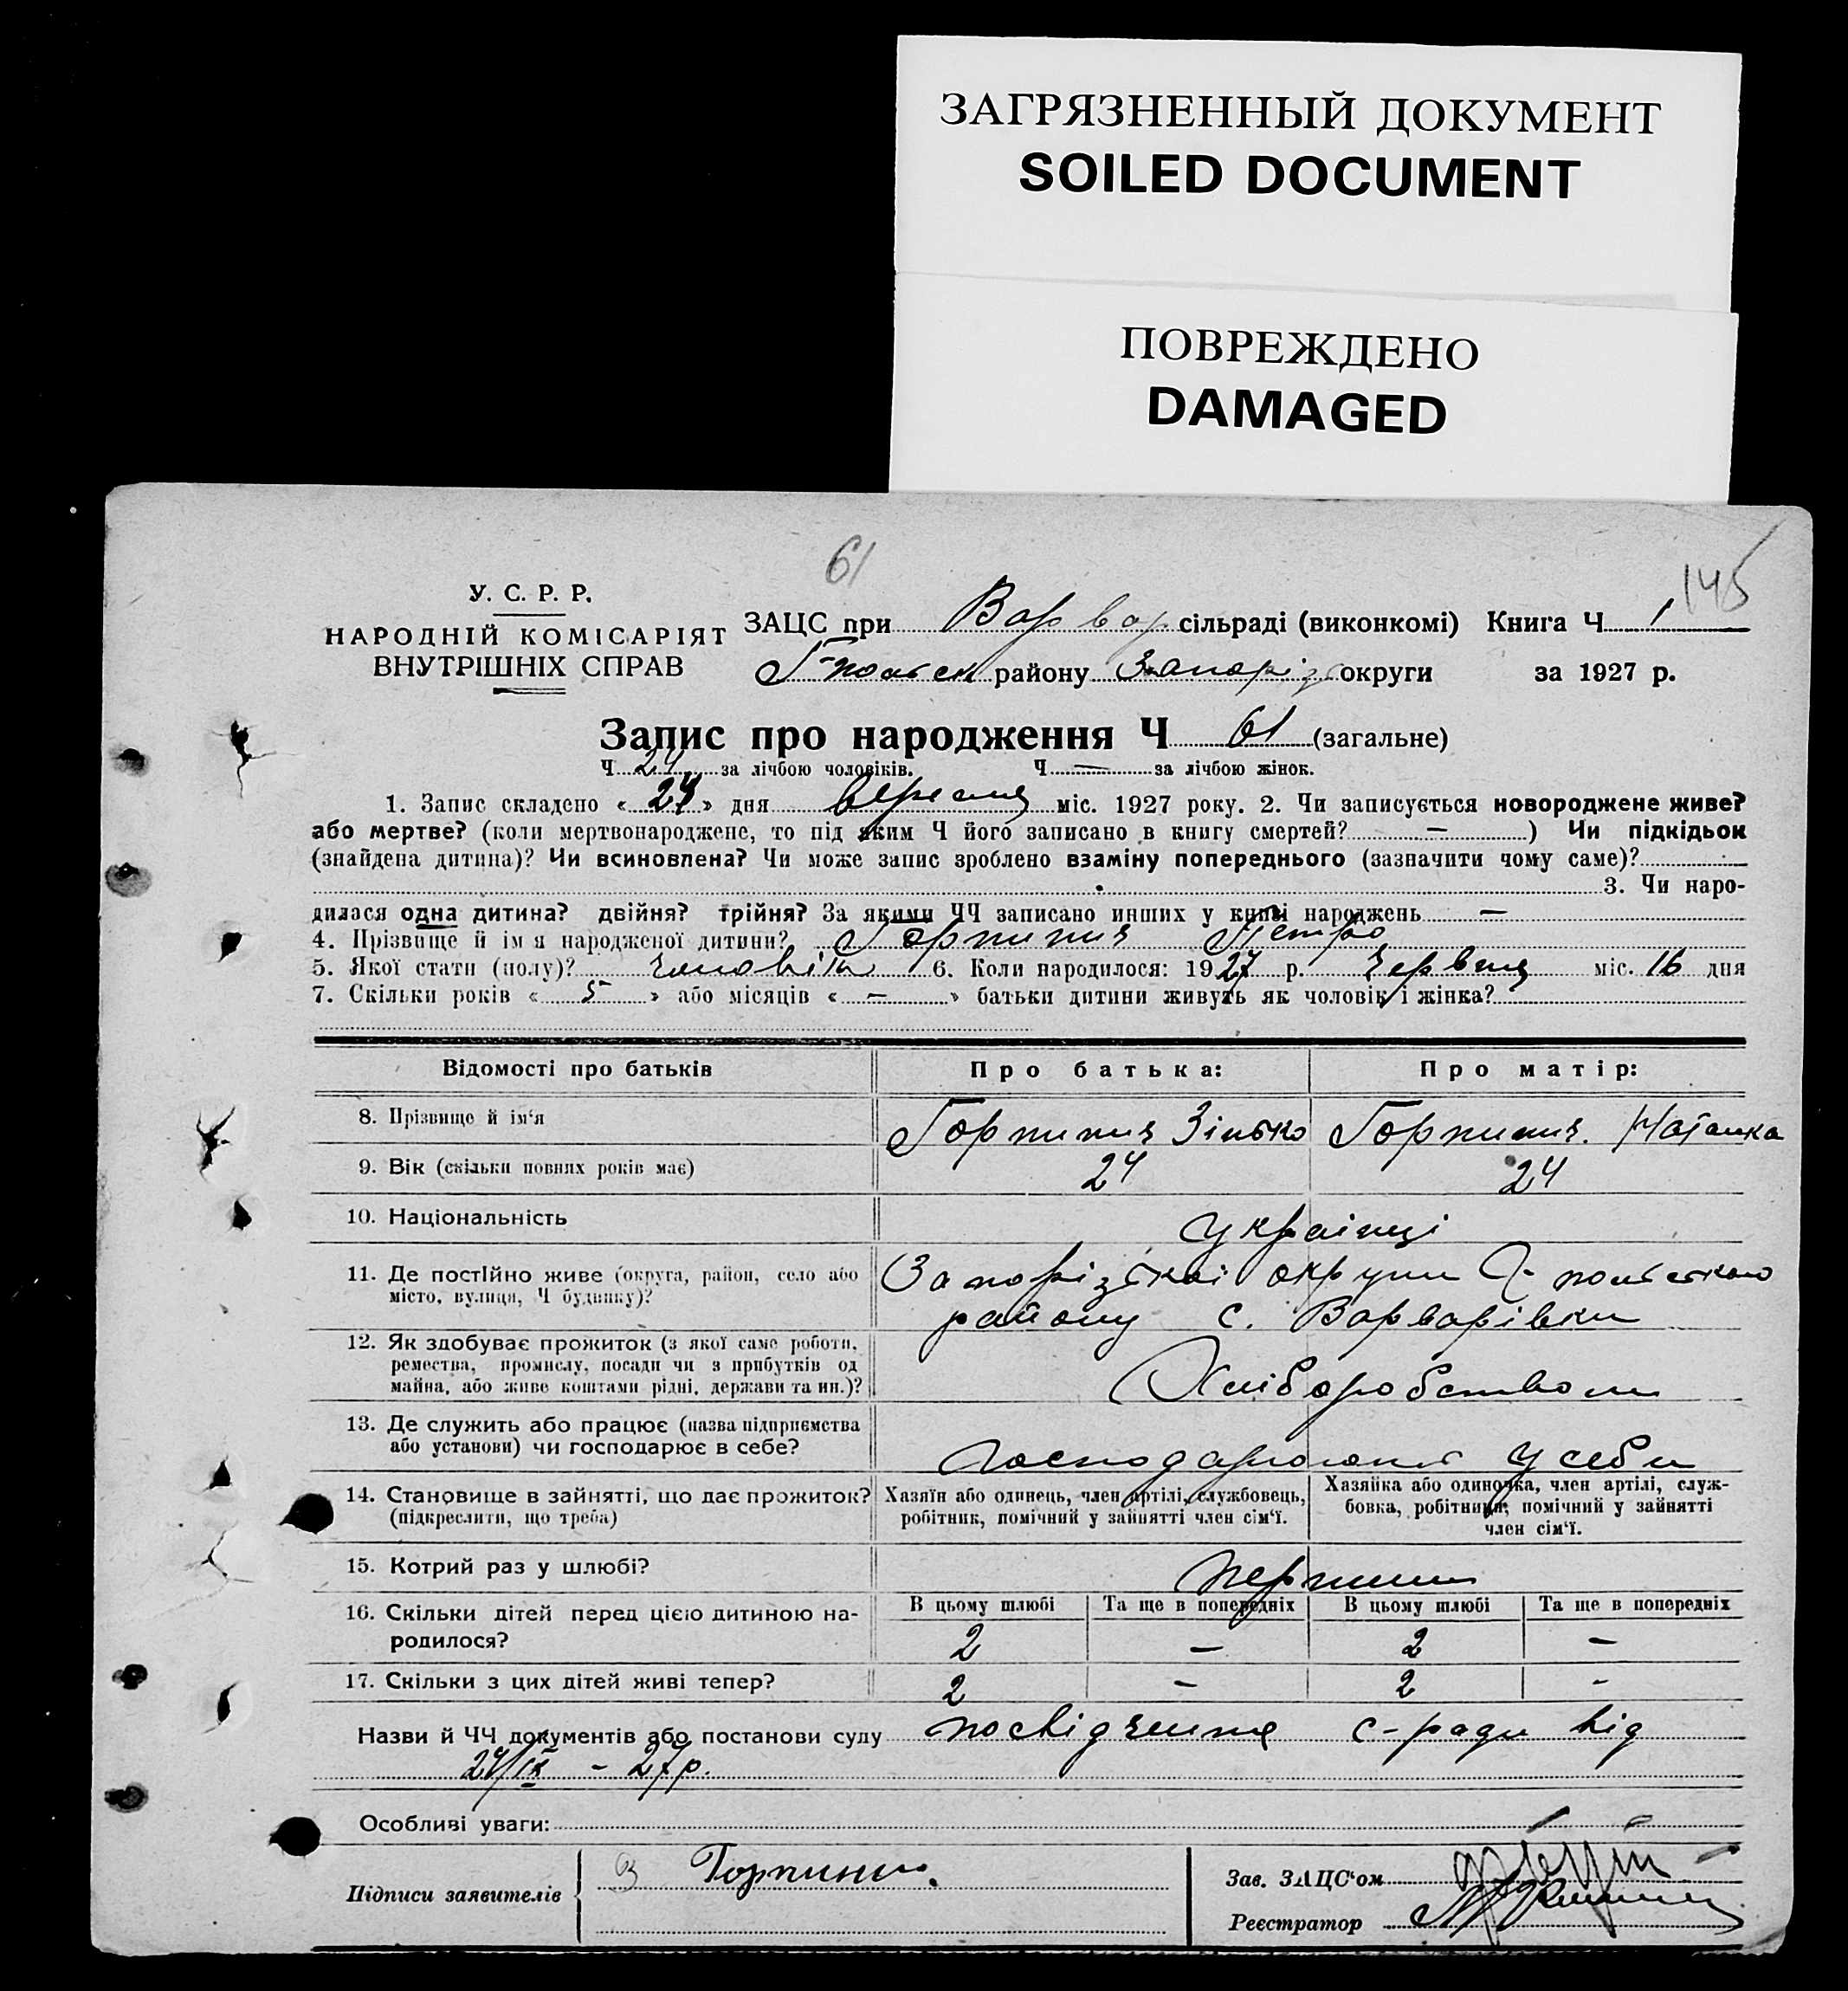 ЗАГРЯЗНЕННЫЙ ДОКУМЕНТ
SOILED DOCUMENT
ПОВРЕЖДЕНО
DAMAGED
61
145
У. С. Р. Р.
НАРОДНІЙ КОМІСАРІЯТ
ВНУТРІШНІХ СПРАВ
ЗАЦС при Варвар сільраді (виконкомі) Книга Ч 1
району Запоріз округи за 1927 р.
Запис про народження Ч 61 (загальне)
Ч 24 за лічбою чоловіків. Ч — за лічбою жінок.
1. Запис складено « 24 » дня вересня міс. 1927 року. 2. Чи записується новороджене живе?
або мертве? (коли мертвонароджене, то під яким Ч його записано в книгу смертей? — ) Чи підкідьок
(знайдена дитина)? Чи всиновлена? Чи може запис зроблено взаміну попереднього (зазначити чому саме)?
3. Чи наро-
дилася одна дитина? двійня? трійня? За якими ЧЧ записано инших у книзі народжень —
4. Прізвище й ім'я народженої дитини? Горпинич Петро
5. Якої стати (полу)? чоловік 6. Коли народилося: 1927 р. червня міс. 16 дня
7. Скільки років « 5 » або місяців « — » батьки дитини живуть як чоловік і жінка?
Відомості про батьків Про батька: Про матір:
8. Прізвище й ім'я Горпинич Зінько Горпинич. Наталка
9. Вік (скільки повних років має) 24 24
10. Національність Українці
11. Де постійно живе (округа, район, село або
місто, вулиця, Ч будинку)?
Запорізької округи
району с. Варварівки
12. Як здобуває прожиток (з якої саме роботи,
ремества, промислу, посади чи з прибутків од
майна, або живе коштами рідні, держави та ин.)?
Хліборобством
13. Де служить або працює (назва підприємства
або установи) чи господарює в себе?
господарюють у себи
14. Становище в зайнятті, що дає прожиток?
(підкреслити, що треба)
Хазяїн або одинець, член артілі, службовець,
робітник, помічний у зайнятті член сім'ї.
Хазяйка або одиночка, член артілі, служ-
бовка, робітниця, помічний у зайнятті
член сім'ї.
15. Котрий раз у шлюбі? перший
16. Скільки дітей перед цією дитиною на-
родилося?
В цьому шлюбі Та ще в попередніх В цьому шлюбі Та ще в попередніх
2 — 2 —
17. Скільки з цих дітей живі тепер? 2 - 2 -
Назви й ЧЧ документів або постанови суду посвідчення с-ради від
24/IX - 27 р.
Особливі уваги:
Підписи заявителів З Горпинич.
Зав. ЗАЦС'ом
Реєстратор